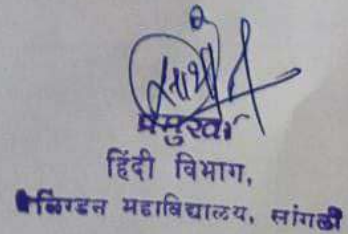 प्रमुख
हिंदी विभाग,
विलिंग्डन महाविद्यालय, सांगली